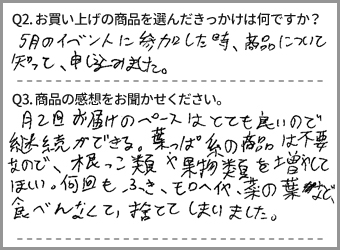 Q2. お買い上げの商品を選んだきっかけは何ですか？
5月のイベントに参加した時、商品について
知って、申し込みました。
Q3. 商品の感想をお聞かせください。
月2回お届けのペースはとても良いので
継続ができる。葉っぱ系の商品は不要
なので、根っこ類や果物類を増やして
ほしい。何回も、ふき、モロヘイヤ、菜の葉など、
食べんなくて、捨ててしまいました。